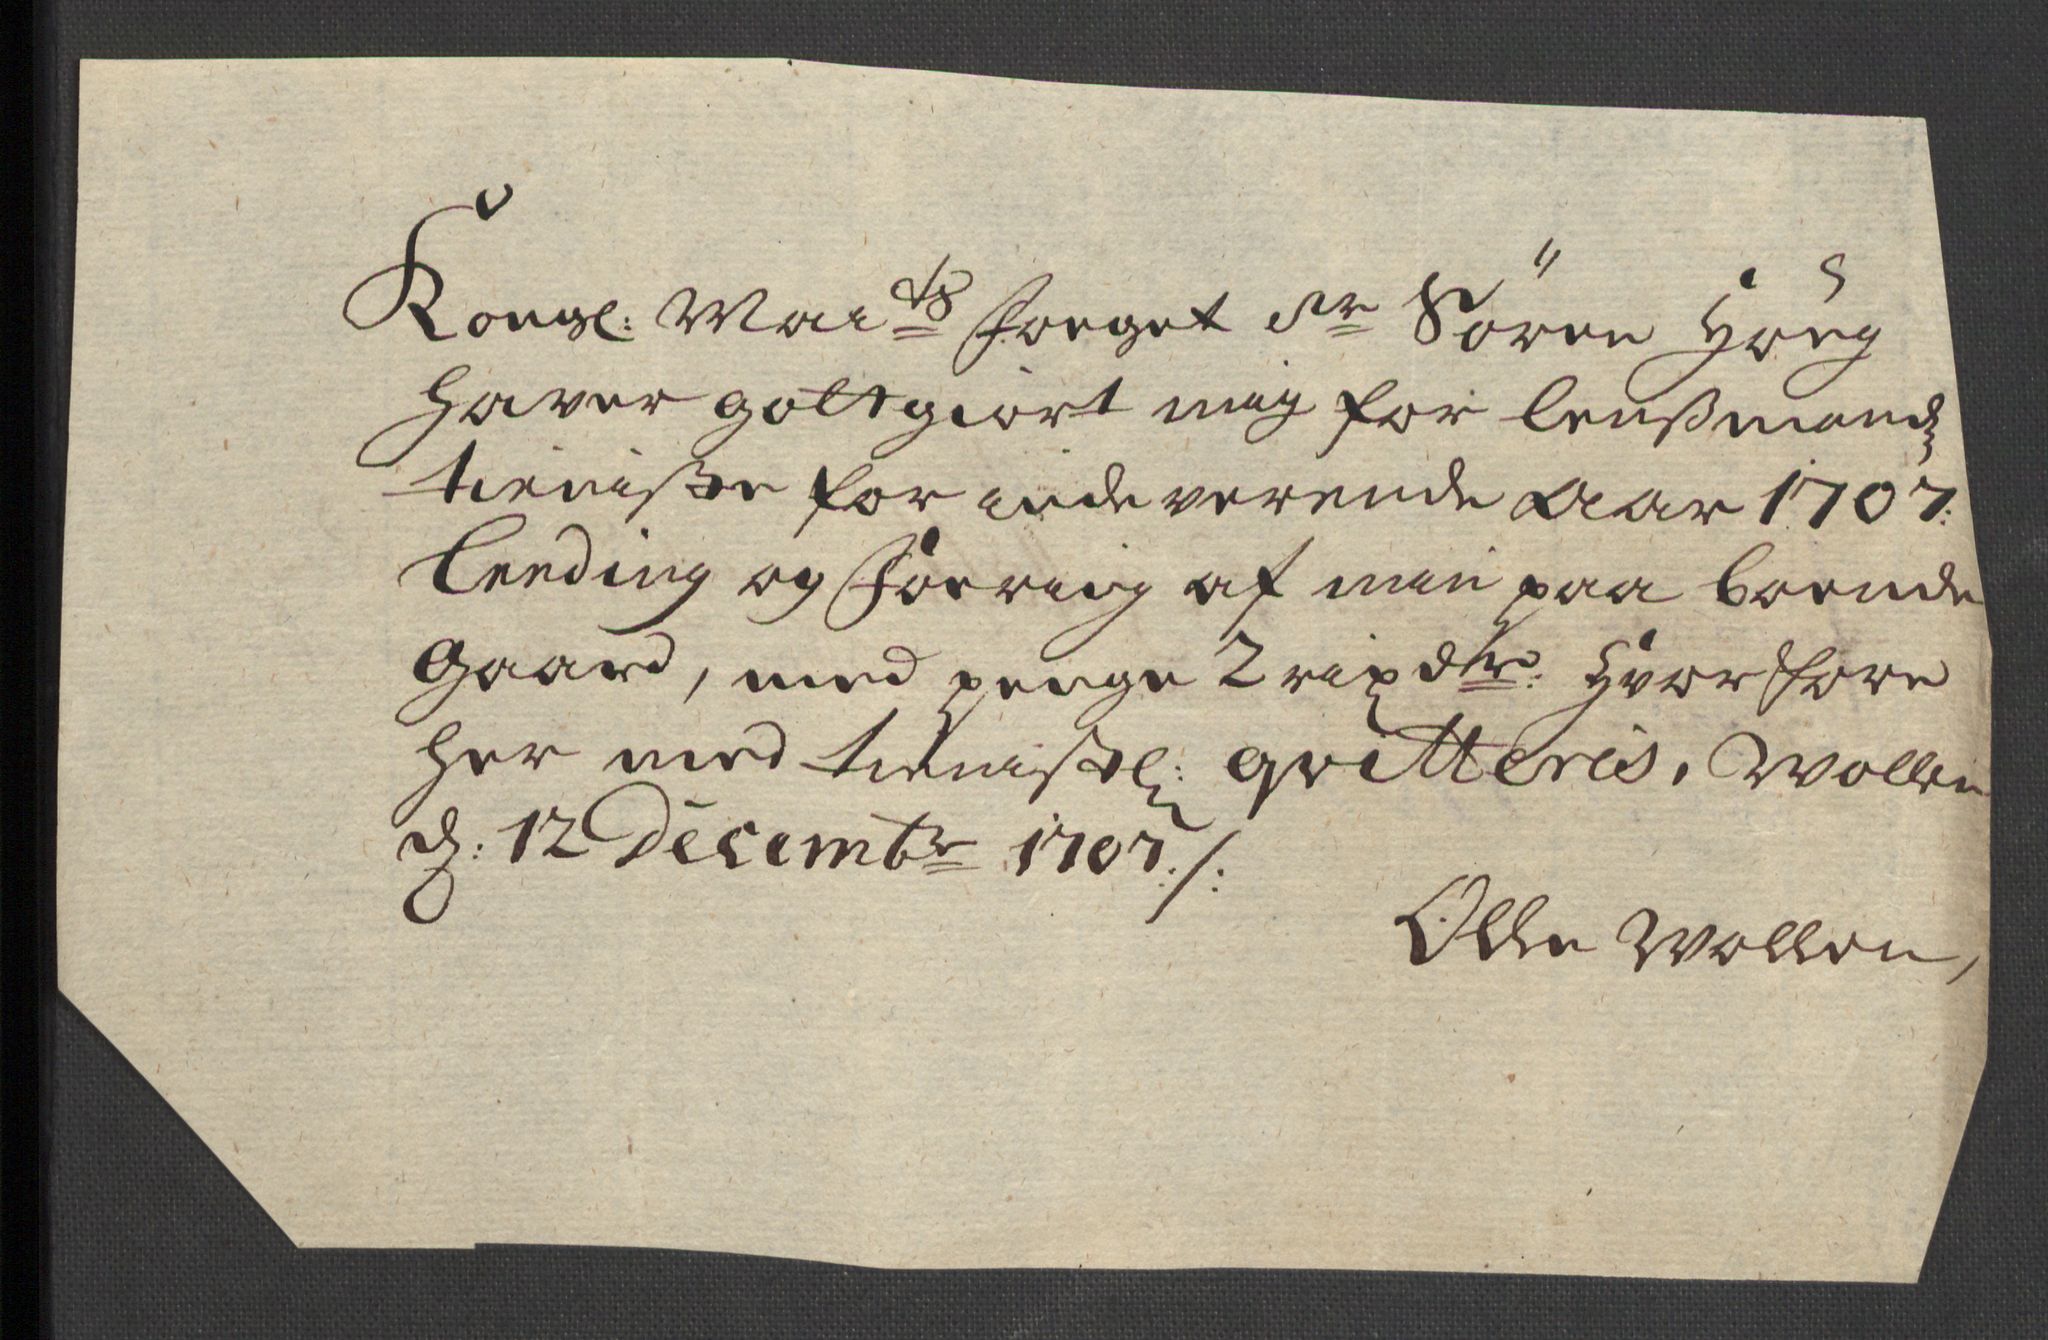 Kongl: Maits Foeget Sr Sören Höeg
haver gottgiort mig for lensmandz
tieniste for inde verende Aar 1707:
Leeding og Foering af min paa boende
Gaard, med penge 2 rixdr: Hvorfore
her med tienistl: qvitteris. Wollen
d: 12 Decembr 1707:/:
Olle Wollen,